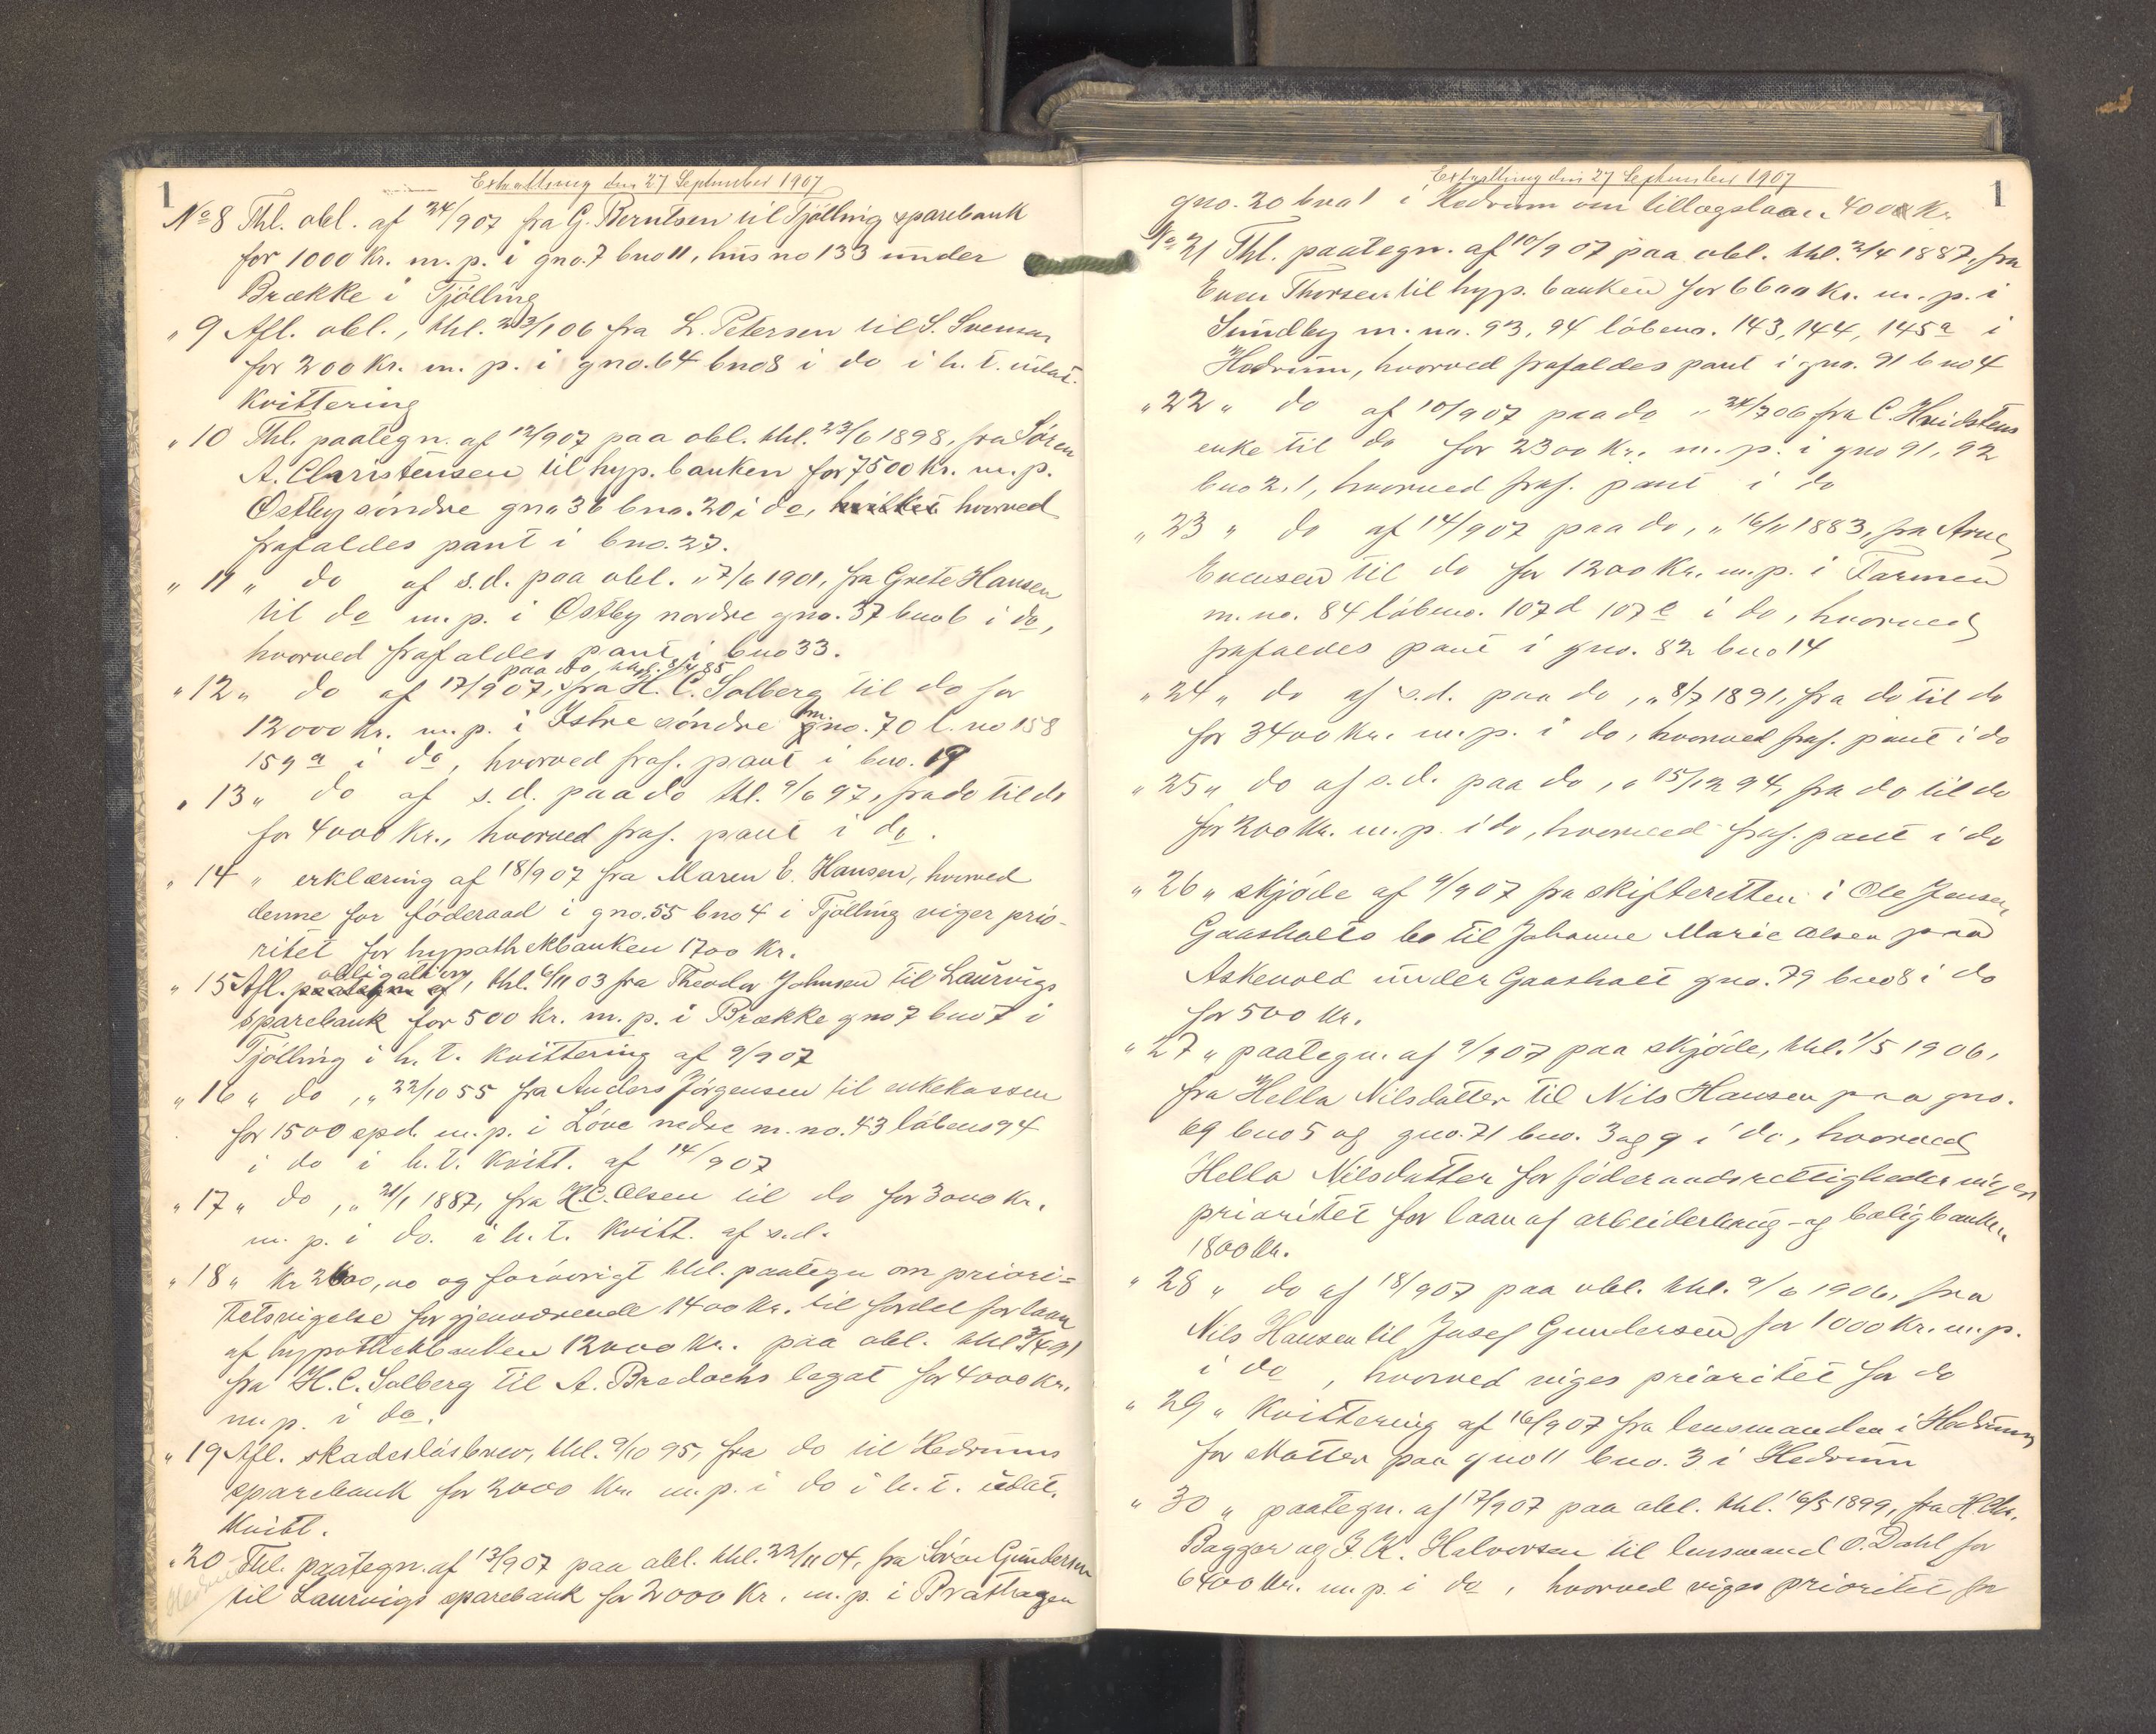 1
Extrattning den 27 September 1907
No 8 Thl. obl. af 24/907 fra G. Berntsen til Tjölling sparebank
for 1000 Kr. m. p. i gno. 7 bno 11, hus no 133 under
Brække i Tjölling
„ 9 Afl. obl., thl. 23/1 06 fra L. Petersen til S. Svensen
for 200 Kr. m. p. i gno. 64 bno 8 i do i h. t. udat.
Kvittering
„ 10 Thl. paategn. af 12/907 paa obl. thl. 23/6 1898, fra Sören
A. Christensen til hyp. banken for 7500 Kr. m. p.
Østby söndre gno 36 bno. 20 i do, hvilket hvorved
frafaldes pant i bno. 27.
„ 11 „ do af s. d. paa obl. „ 7/6 1901, fra Grete Hansen
til do m. p. i Østby nordre gno. 37 bno 6 i do,
hvorved frafaldes pant i bno 33.
paa do, thl. 8/4 85
„ 12 „ do af 17/907, fra H. C. Solberg til do for
12000 Kr. m. p. i Istre söndre m. no. 70 l. no 158
159a i do, hvorved fraf. pant i bno. 19
„ 13 „ do af s. d. paa do thl. 9/6 97, fra do til do
for 4000 Kr., hvorved fraf. pant i do.
„ 14 „ erklæring af 18/907 fra Maren E. Hansen, hvorved
denne for föderaad i gno. 55 bno 4 i Tjölling viger prio-
ritet for hypothekbanken 1700 Kr.
obligation
„ 15 Afl. paategn af, thl. 6/11 03 fra Theodor Johnsen til Laurvigs
sparebank for 500 Kr. m. p. i Brække gno 7 bno 7 i
Tjölling i h. t. Kvittering af 9/907
„ 16 „ do, „ 22/10 55 fra Anders Jörgensen til enkekassen
for 1500 spd. m. p. i Löve nedre m. no. 43 löbeno 94
i do i h. t. Kvitt. af 14/907
„ 17 „ do, „ 21/1 1887, fra H. C. Olsen til do for 3000 Kr.
m. p. i do. i h. t. Kvitt. af s. d.
„ 18 „ Kr 2600,00 og forövrigt thl. paategn om priori=
tetsvigelse for gjenværende 1400 Kr. til fordel for laan
af hypothekbanken 12000 Kr. paa obl. thl 3/4 91
fra H. C. Solberg til A. Bredochs legat for 4000 Kr.
m. p. i do.
„ 19 Afl. skadeslösbrev, thl. 9/10 95, fra do til Hedrums
sparebank for 2000 Kr. m. p. i do i h. t. udat.
Kvitt.
„ 20 Thl. paategn. af 13/907 paa obl. thl. 22/11 04, fra Sören Gundersen
til Laurvigs sparebank for 2000 Kr. m. p. i Brathagen
1
Extrattning den 27 September 1907
gno. 20 bno 1 i Hedrum om tillægslaan 4000 Kr.
No 21 Thl. paategn. af 10/907 paa obl. thl. 2/4 1887, fra
Even Thorsen til hyp. banken for 6600 Kr. m. p. i
Sundby m. no. 93, 94 löbeno. 143, 144, 145a i
Hedrum, hvorved frafaldes pant i gno. 91 bno 4
„ 22 „ do af 10/907 paa do „ 24/7 06 fra C. Hvidstens
enke til do for 2300 Kr. m. p. i gno 91, 92
bno 2, 1, hvorved fraf. pant i do
„ 23 „ do af 14/907 paa do, „ 16/11 1883, fra Arne
Evensen til do for 1200 Kr. m. p. i Farmen
m. no. 84 löbeno. 107d 107e i do, hvorved
frafaldes pant i gno. 82 bno 14
„ 24 „ do af s. d. paa do, „ 8/7 1891, fra do til do
for 3400 Kr. m. p. i do, hvorved fraf. pant i do
„ 25 „ do af s. d. paa do, „ 15/12 94, fra do til do
for 200 Kr. m. p. i do, hvorved fraf. pant i do
„ 26 „ skjöde af 9/907 fra skifteretten i Ole Jensen
Gaasholts bo til Johanne Marie Olsen paa
Askevold under Gaasholt gno. 79 bno 8 i do
for 500 Kr.
„ 27 „ paategn. af 9/907 paa skjöde, thl. 1/5 1906,
fra Hella Nilsdatter til Nils Hansen paa gno.
69 bno 5 og gno. 71 bno. 3 og 9 i do, hvorved
Hella Nilsdatter for föderaadsrettigheder viger
prioritet for laan af arbeiderbrug- og boligbanken
1800 Kr.
„ 28 „ do af 18/907 paa obl. thl. 9/6 1906, fra
Nils Hansen til Josef Gundersen for 1000 Kr. m. p.
i do, hvorved viges prioritet for do
„ 29 „ Kvittering af 16/907 fra lensmanden i Hedrum
for Motten paa gno 11 bno. 3 i Hedrum
„ 30 „ paategn. af 17/907 paa obl. thl. 16/5 1899, fra H. Chr.
Bagger og J. K. Halvorsen til lensmand O. Dahl for
6400 Kr. m. p. i do, hvorved viges prioritet for